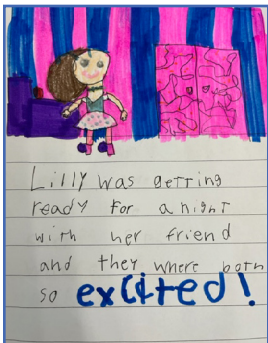 Lilly was getting
ready for a night
with her friend
and they where both
so excited!